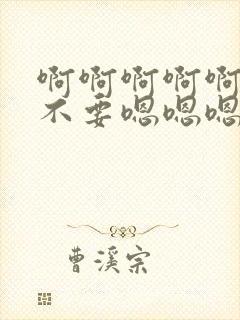 啊啊啊啊啊
不要嗯嗯嗯
曹溪宗